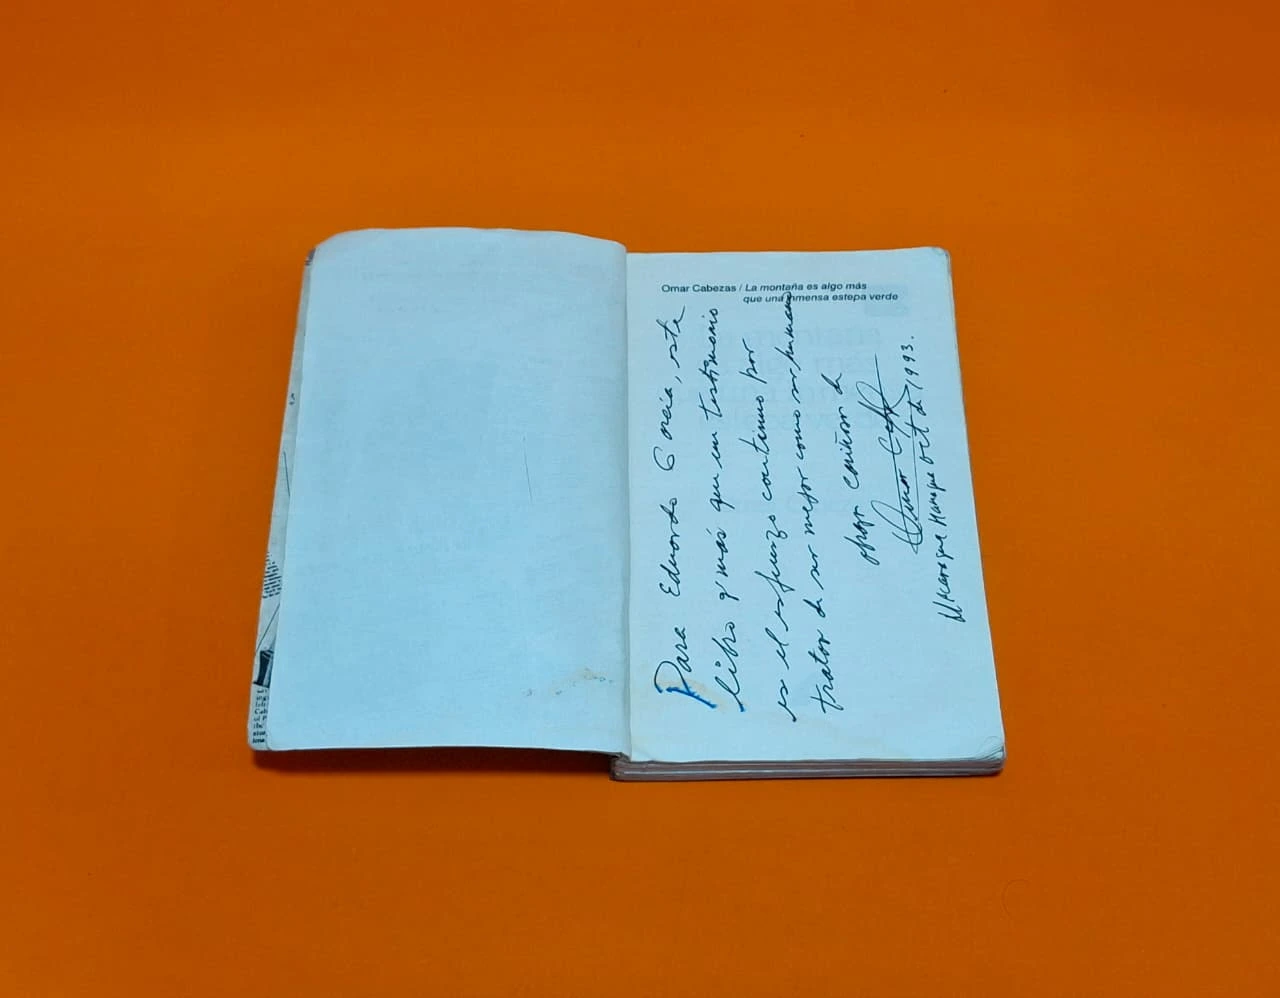 Omar Cabezas / La montaña es algo más
que una inmensa estepa verde
Para Eduardo García, este
libro q' más que un testimonio
es el esfuerzo continuo por
tratar de ser mejor como ser humano
abrazo cariñoso de
Omar
Managua oct de 1993.